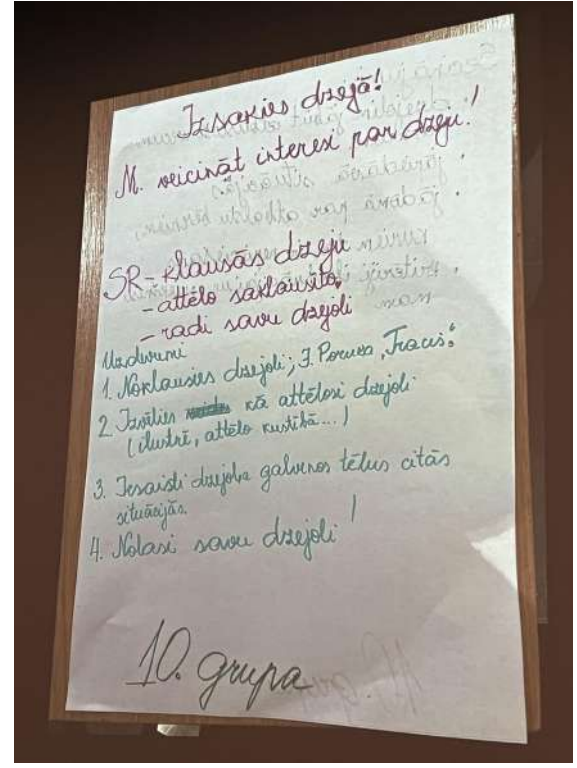 Izsakies dzejā!
M. veicināt interesi par dzeju!
SR - klausās dzeju
- attēlo saklausīto
- radi savu dzejoli
Uzdevumi
1. Noklausies dzejoli; J. Poruka „Tracis“.
2. Izvēlies kā attēlosi dzejoli
(ilustrē, attēlo kustībā...)
3. Iesaisti dzejoļa galvenos tēlus citās
situācijās.
4. Nolasi savu dzejoli!
10. grupa